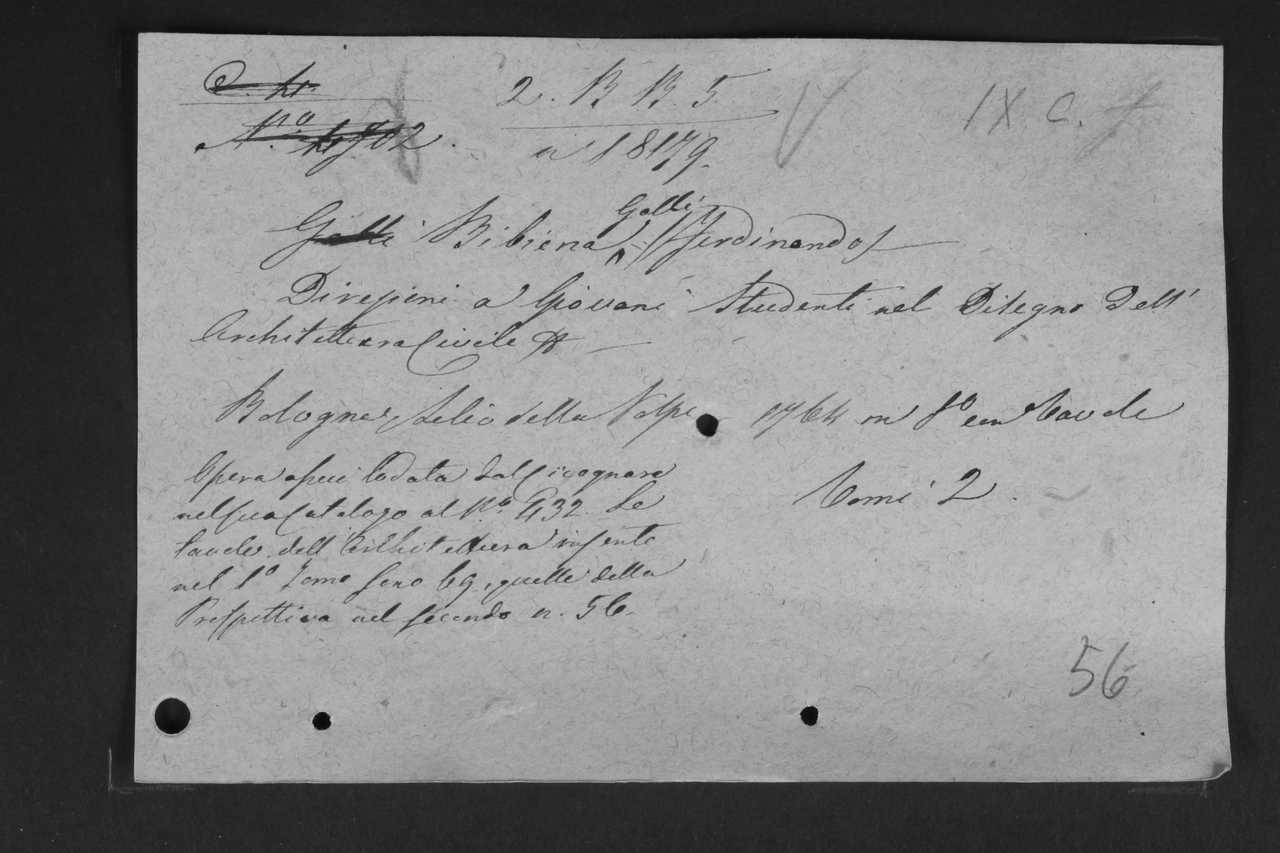 2. B B. 5
n° 18179.
IX. C.
Galli
Galli Bibiena (Ferdinando)
Direzioni a' Giovani Studenti nel Disegno dell'
Architettura Civile
Bologna, Lelio della Volpe 1764 in 8° con tavole
Tomi 2.
Opera assai lodata dal Cicognara
nel suo Catalogo al N° 432. Le
tavole dell'Architettura inserite
nel 1° Tomo sono 69, quelle della
Prospettiva nel secondo n. 56.
56